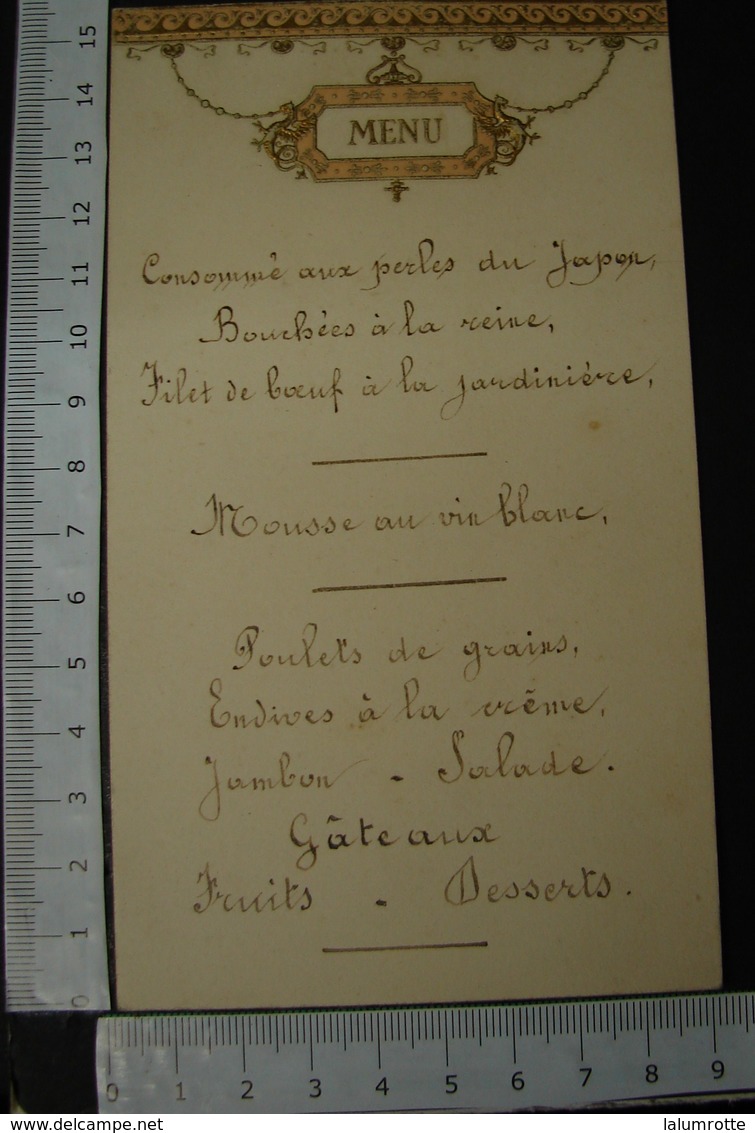 MENU
Consommé aux perles du Japon,
Bouchées à la reine,
Filet de bœuf à la jardinière,
Mousse au vin blanc,
Poulets de grains,
Endives à la crême,
Jambon - Salade.
Gâteaux
Fruits - Desserts.
15
14
13
12
11
10
9
8
7
6
5
4
3
2
1
0
0 1 2 3 4 5 6 7 8 9
www.delcampe.net
lalumrotte